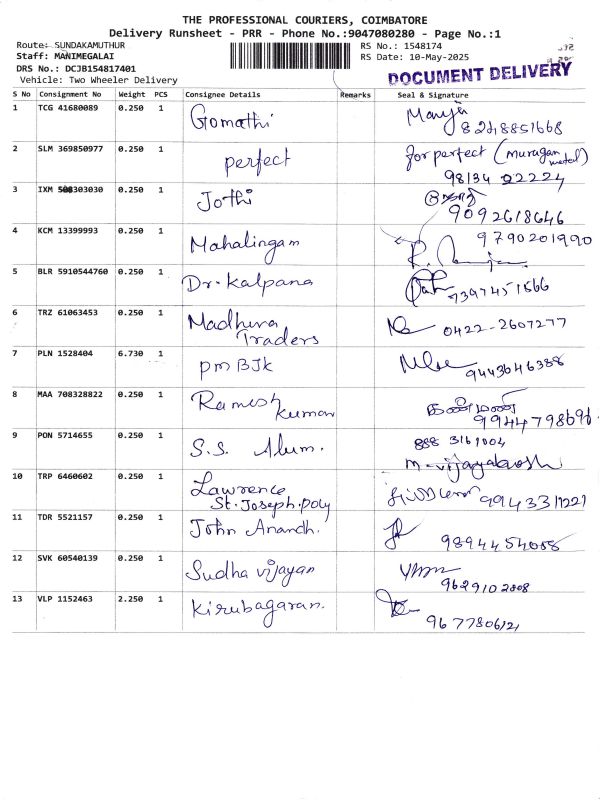 THE PROFESSIONAL COURIERS, COIMBATORE
Delivery Runsheet - PRR - Phone No.:9047080280 - Page No.:1
Route: SUNDAKAMUTHUR RS No.: 1548174
Staff: MANIMEGALAI RS Date: 10-May-2025
DRS No.: DCJB154817401
Vehicle: Two Wheeler Delivery
DOCUMENT DELIVERY
S No Consignment No Weight PCS Consignee Details Remarks Seal & Signature
1 TCG 41680089 0.250 1 Gomathi
8248851668
2 SLM 369850977 0.250 1 perfect for perfect (murugan metal)
98134 22224
3 IXM 508303030 0.250 1 Jothi
9092618646
4 KCM 13399993 0.250 1 Mahalingam 9790201990
5 BLR 5910544760 0.250 1 Dr. Kalpana
7397451566
6 TRZ 61063453 0.250 1 Madhura Traders 0422-2607277
7 PLN 1528404 6.730 1 pm BJk
9443646388
8 MAA 708328822 0.250 1 Ramesh Kumar கண்மணி
9 PON 5714655 0.250 1 S.S. Alum. 888 3161004
10 TRP 6460602 0.250 1 Lawrence
St. Joseph. poly
11 TDR 5521157 0.250 1 John Anandh.
9894454058
12 SVK 60540139 0.250 1 Sudha vijayan
9629102008
13 VLP 1152463 2.250 1 Kirubagaran.
9677806121